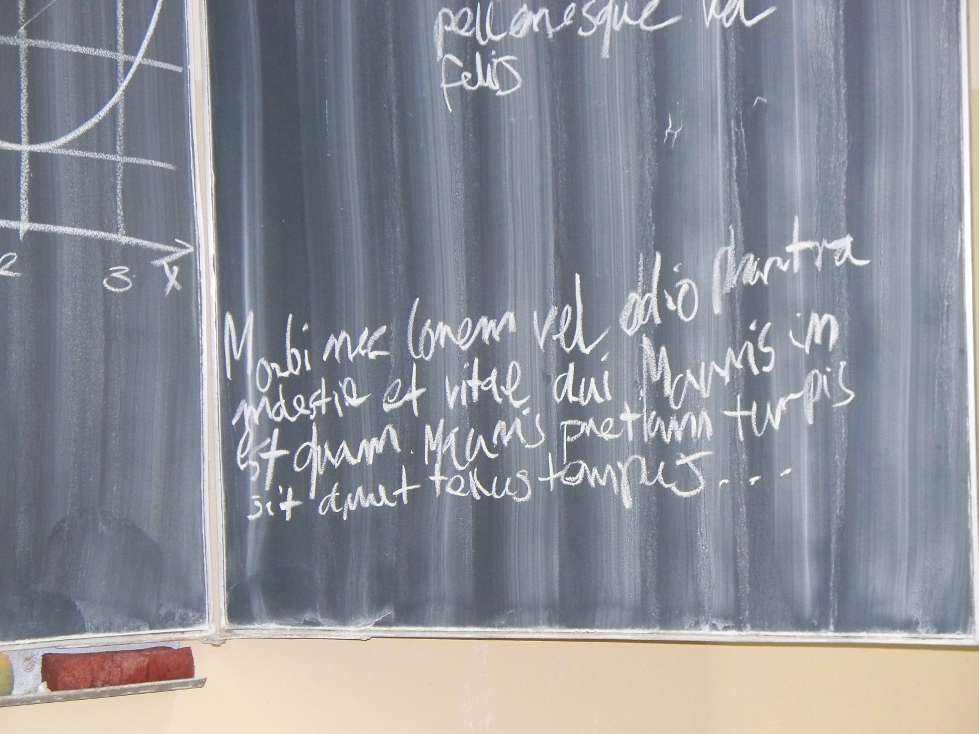 pellentesque vel
felis
2 3 x
Morbi nec lorem vel odio pharetra
molestie et vitae dui Mauris in
est quam. Mauris pretium turpis
sit amet tellus tempus...